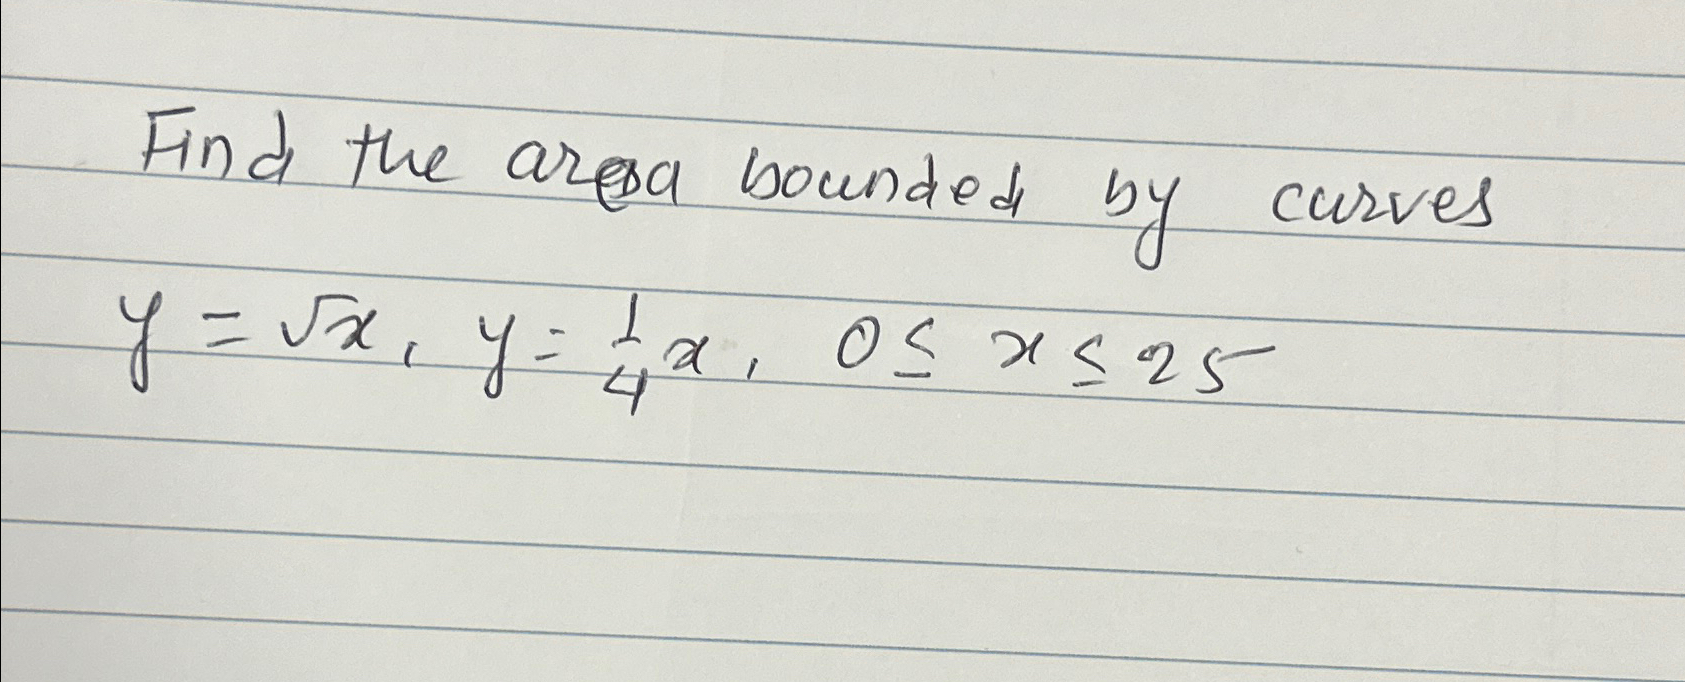 Find the area bounded by curves
y = √x, y = 1/4 x, 0 ≤ x ≤ 25